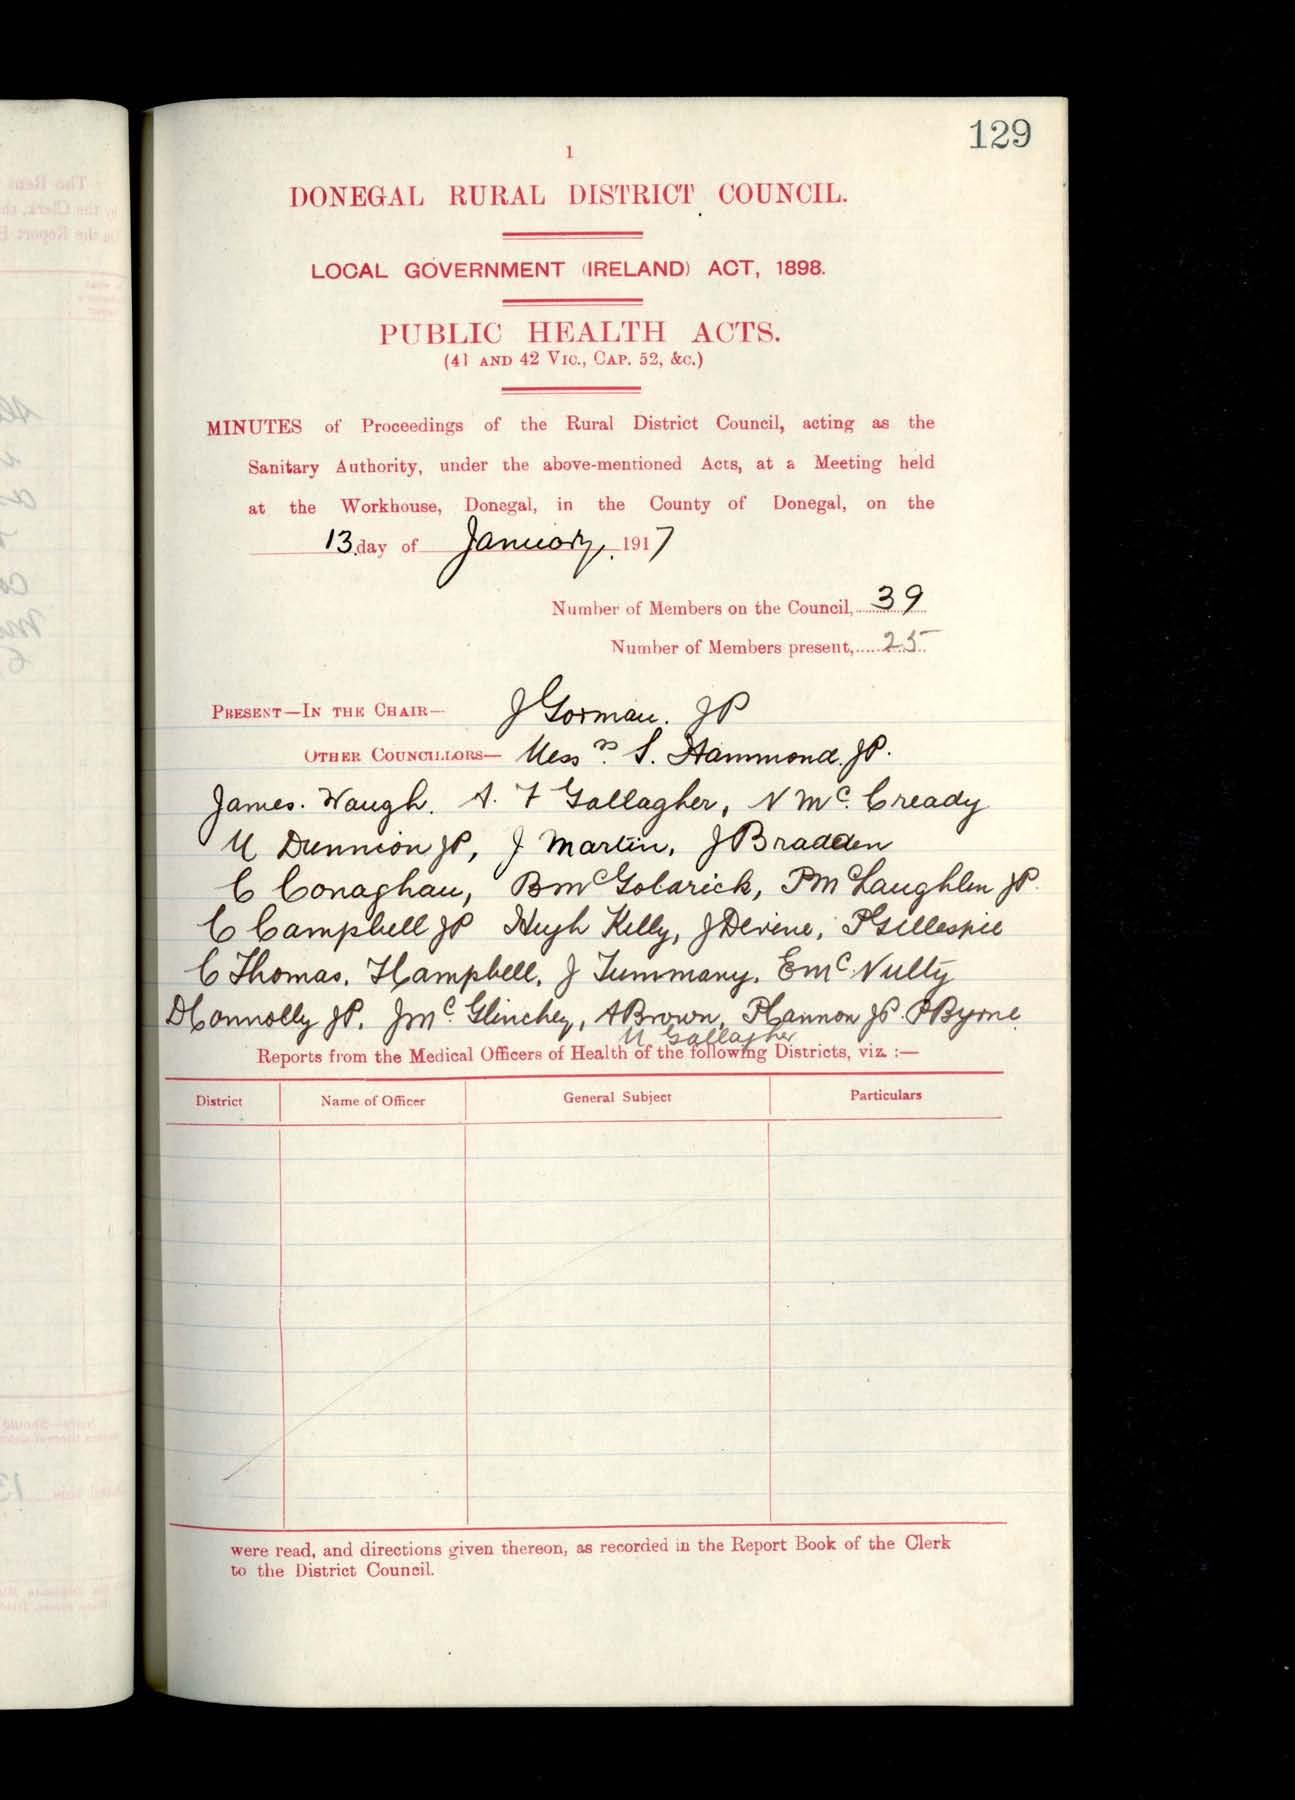 129
1
DONEGAL RURAL DISTRICT COUNCIL.
LOCAL GOVERNMENT (IRELAND) ACT, 1898.
PUBLIC HEALTH ACTS.
(41 AND 42 VIC., CAP. 52, &C.)
MINUTES of Proceedings of the Rural District Council, acting as the
Sanitary Authority, under the above-mentioned Acts, at a Meeting held
at the Workhouse, Donegal, in the County of Donegal, on the
13 day of January, 1917
Number of Members on the Council, 39
Number of Members present, 25
PRESENT—IN THE CHAIR— J Gorman. JP
OTHER COUNCILLORS— Messrs. S. Hammond. JP.
James. Waugh. A. F Gallagher, N McCready
M Dunnion JP, J Martin, J Bradden
C Conaghan, B McGoldrick, P McLaughlin JP.
C Campbell JP Hugh Kelly, J Devine, P Gillespie
C Thomas, F Campbell, J Tummany, E McNulty
D Connolly JP, J McGlinchey, A Brown, P Cannon JP. P Byrne
M Gallagher
Reports from the Medical Officers of Health of the following Districts, viz. :—
District Name of Officer General Subject Particulars
were read, and directions given thereon, as recorded in the Report Book of the Clerk
to the District Council.